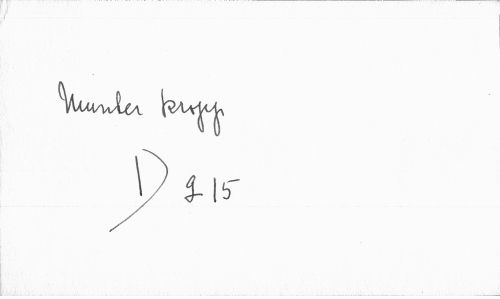 Munter kropp
D 915